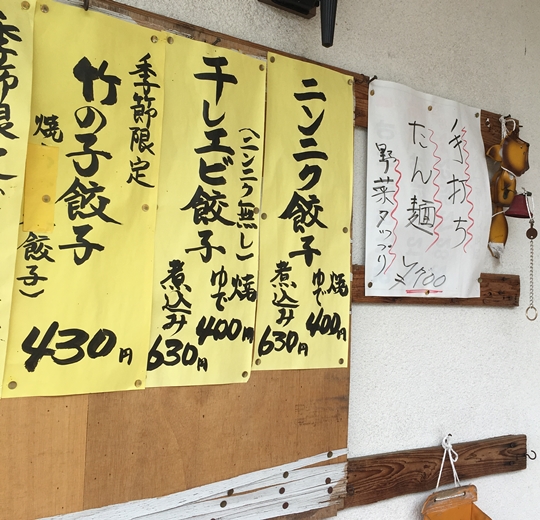 手打ち
たん麺
野菜タップリ
¥700
ニンニク餃子
焼
ゆで 400円
煮込み 630円
干しエビ餃子
(ニンニク無し)
焼
ゆで 400円
煮込み 630円
季節限定
竹の子餃子
焼
餃子)
430円
季節限定